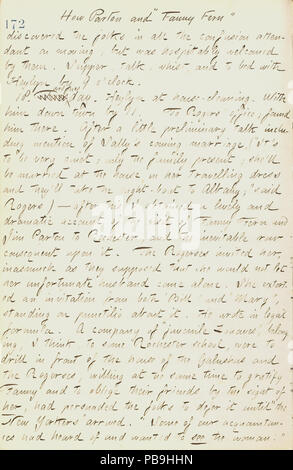 How Parton and "Fanny Fern"
172
discovered the folks in all the confusion atten-
dant on moving, but was hospitably welcomed
by them. Supper, talk, whist, and to bed with
Haylye by 9 o'clock.
10. Day. Haylye at house-cleaning. With
him down town by 11. To Rogers' office, found
him there. After a little preliminary talk inclu-
ding mention of Sally's coming marriage (It's
to be very quiet, only the family present, she'll
be married at the house in her travelling dress
and they'll take the night-boat to Albany, said
Rogers) — after this I obtained a lively and
dramatic account of the visit of Fanny Fern and
Jim Parton to Rochester and the inevitable row
consequent upon it. The Rogerses invited her,
inasmuch as they supposed that she would not let
her unfortunate husband come alone. She extort-
ed an invitation from both Bill and Mary,
standing on punctilio about it. He wrote in legal
formula. A company of juvenile Zouaves, belong-
ing, I think, to some Rochester school, were to
drill in front of the house of the Galushas and
the Rogerses, willing at the same time to gratify
Fanny and to oblige their friends by the sight of
her, had persuaded the folks to defer it until "the
New Yorkers arrived." "Some of our acquaintan-
ces had heard of and wanted to see the woman."
alamy
Image ID: PB9HHN
www.alamy.com